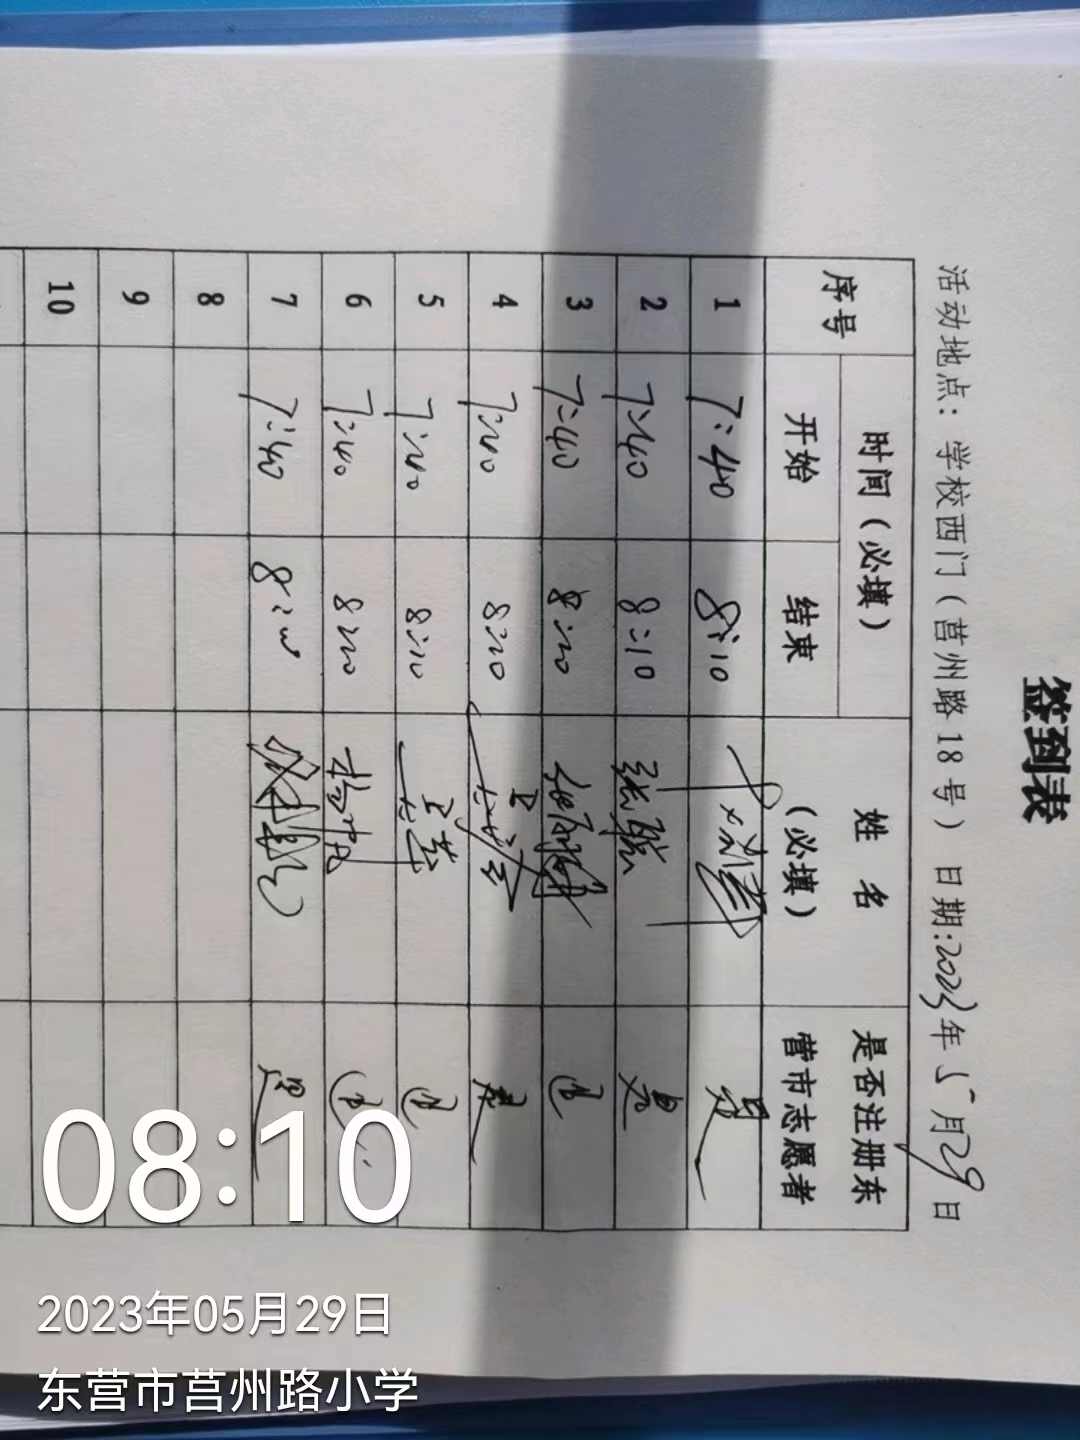 签到表
活动地点：学校西门（莒州路18号） 日期：2023年5月29日
序号 时间（必填） 姓名（必填） 是否注册东营市志愿者
开始 结束
1 7:40 8:10 是
2 7:40 8:10 张 是
3 7:40 8:10 是
4 7:40 8:10 是
5 7:40 8:10 是
6 7:40 8:10 是
7 7:40 8:10 是
8
9
10
08:10
2023年05月29日
东营市莒州路小学